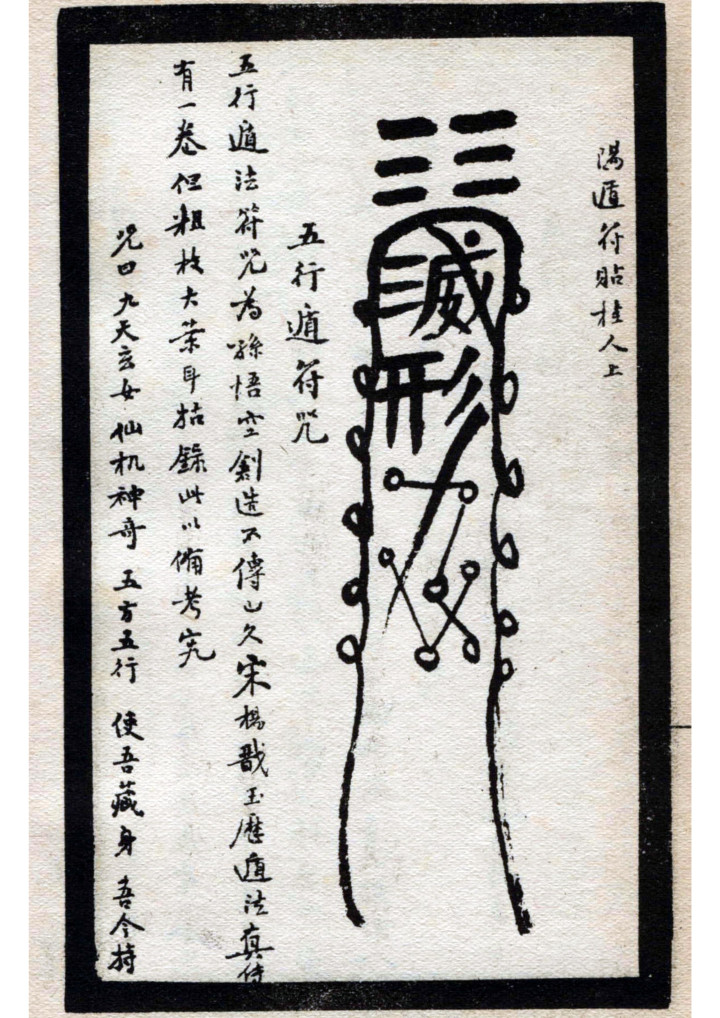 陽遁符貼桂人上
滅形
五行遁符咒
五行遁法符咒為孫悟空創造不傳山久宋楊戩玉歷遁法真传
有一卷但粗枝大葉耳拈錄此以備考究
咒曰九天玄女仙机神奇 五方五行 使吾藏身 吾今持